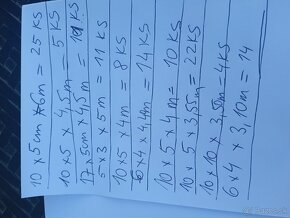 10 x 5cm x 6m = 25 KS
10 x 5 x 4,5m = 5 KS
17 x 5cm x 4,5m = 1 KS
5 x 3 x 5m = 11 KS
10 x 5 x 4m = 8 KS
6 x 4 x 4,4m = 14 KS
10 x 5 x 4m = 10 KS
10 x 5 x 3,55m = 22 KS
10 x 10 x 3,50m = 4 KS
6 x 4 x 3,10m = 14